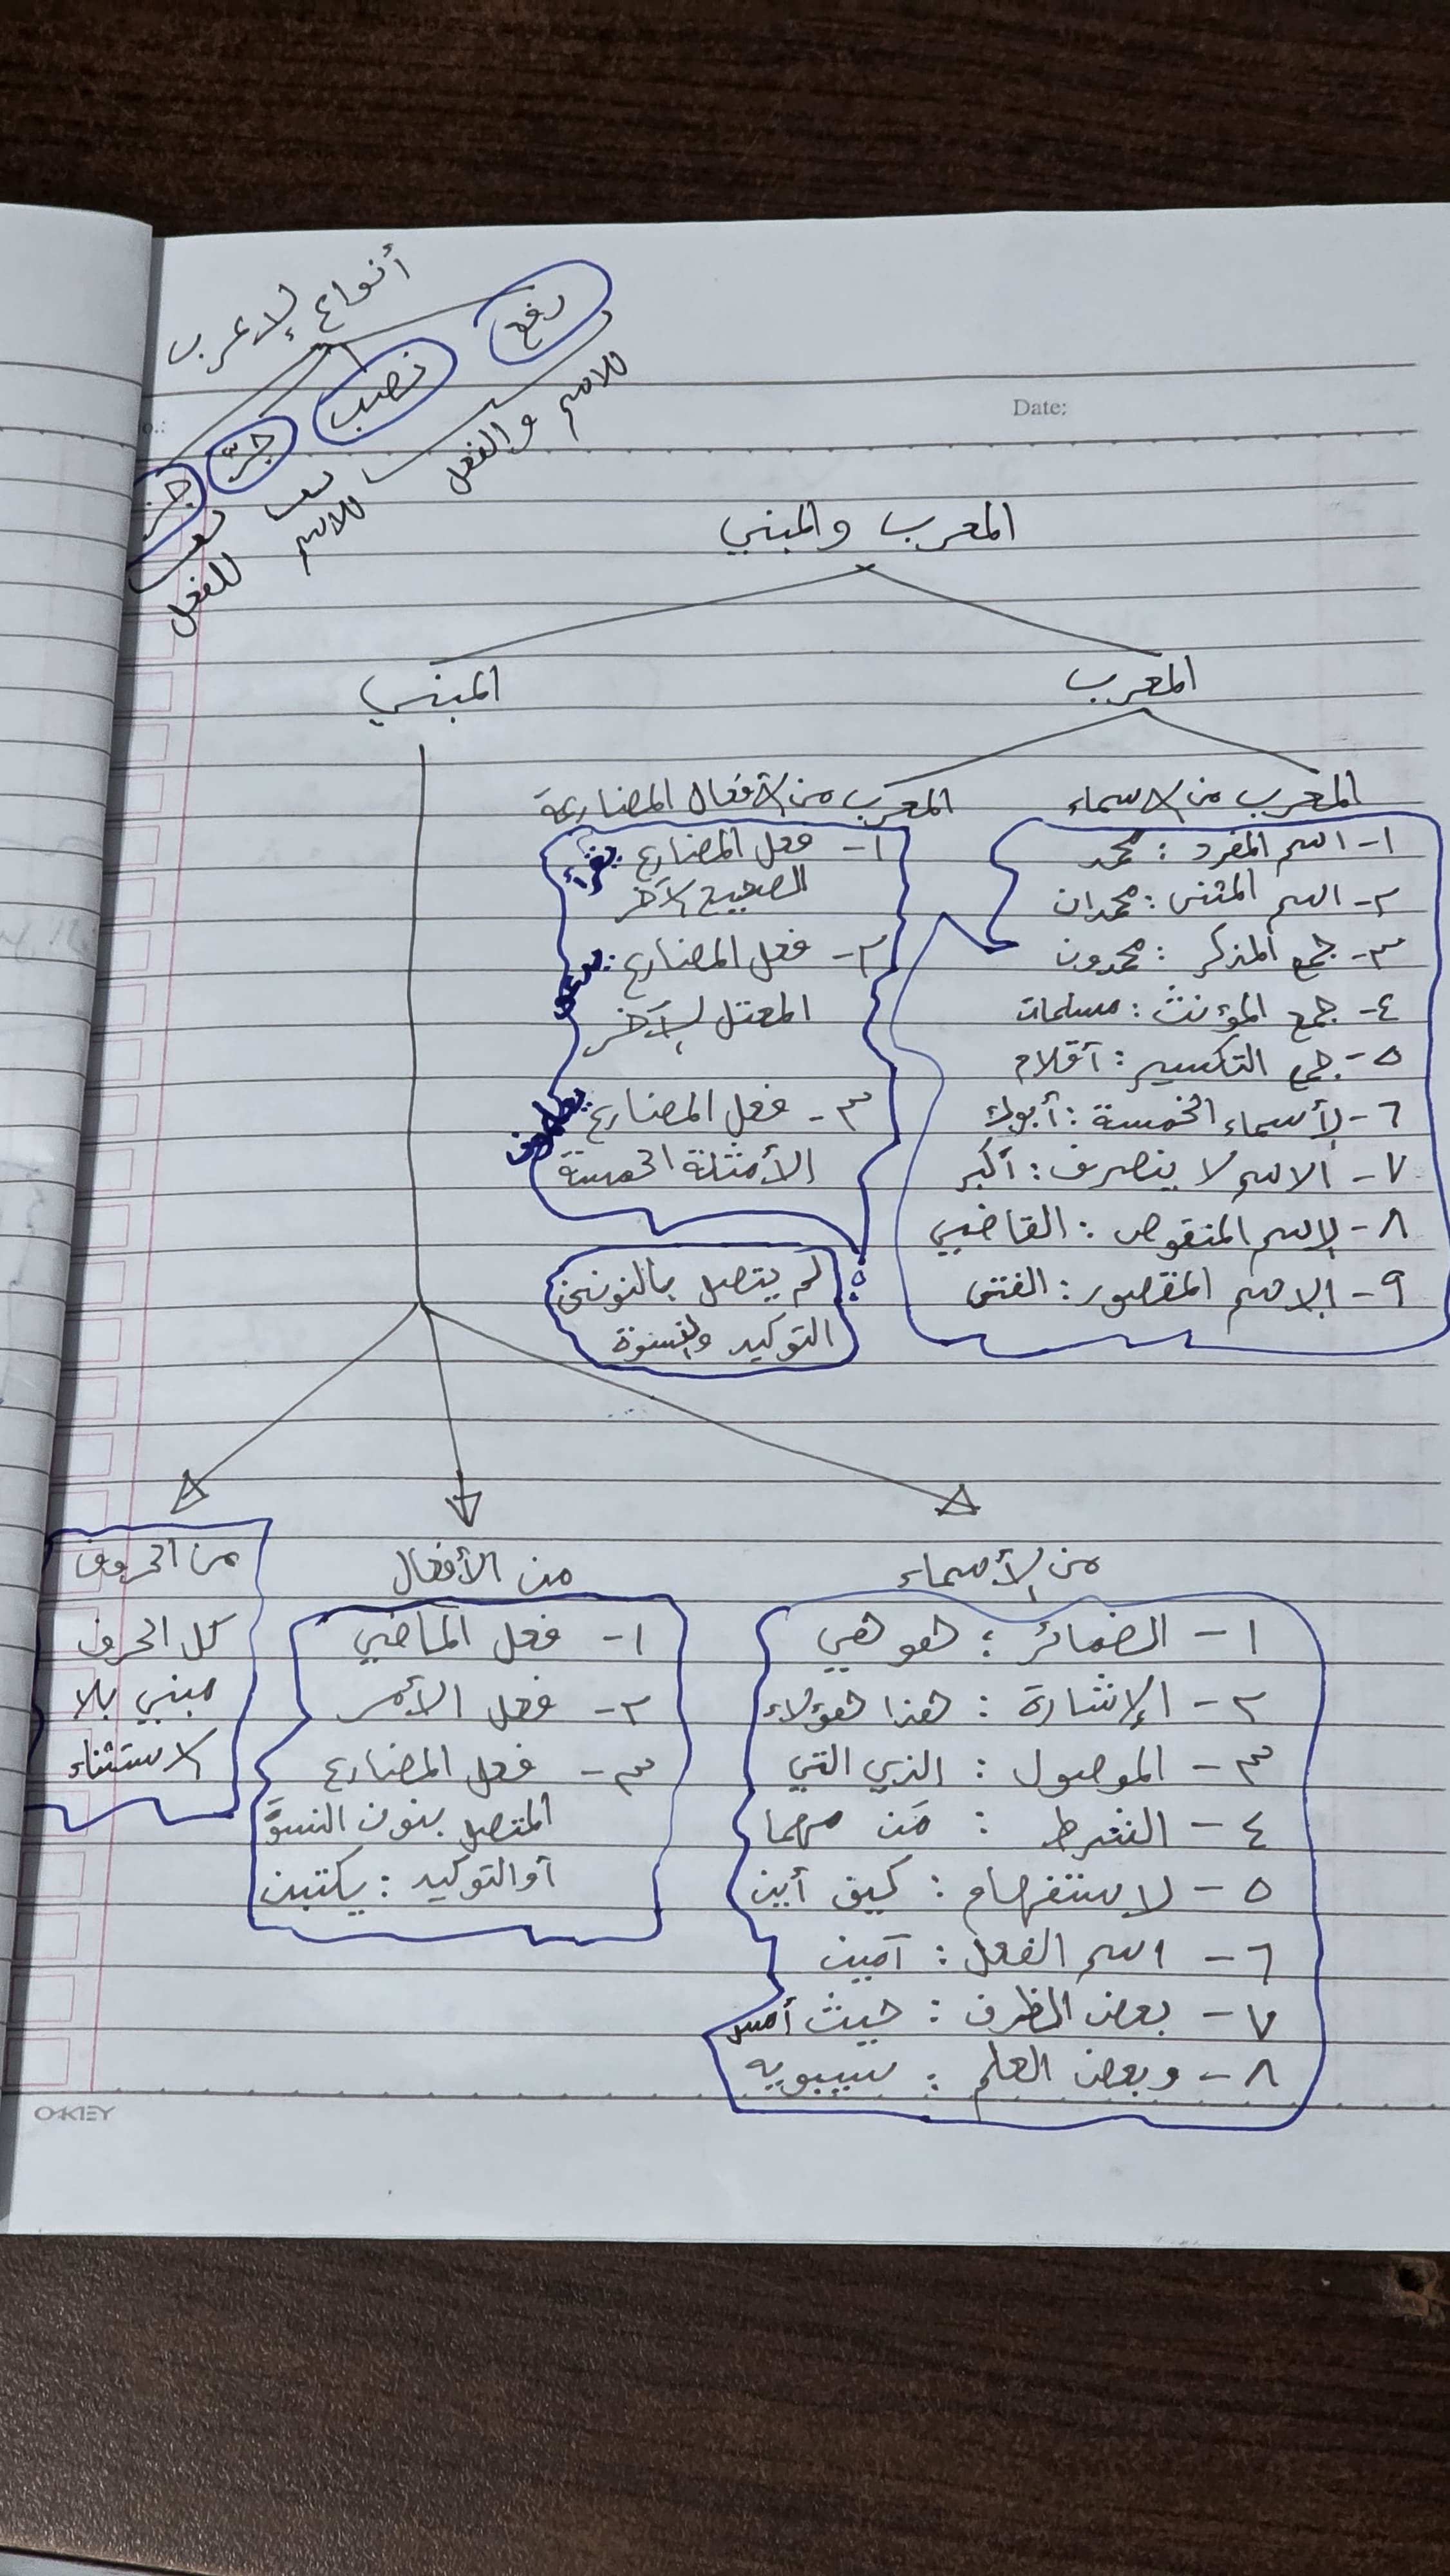 أنواع الإعرب
رفع
نصب
جرّ
للاسم والفعل
للاسم
للفعل
Date:
المعرب والمبني
المعرب
المبني
المعرب من الاسماء
١- اسم المفرد : محمد
٢- اسم المثنى : محمدان
٣- جمع المذكر : محمدون
٤- جمع المؤنث : مسلمات
٥- جمع التكسير : أقلام
٦- الأسماء الخمسة : أبوك
٧- الاسم لا ينصرف : أكبر
٨- الإسم المنقوص : القاضي
٩- الاسم المقصور : الفتى
المعرب من الأفعال المضارعة
١- فعل المضارع
الصحيح الآخر
٢- فعل المضارع :
المعتل الآخر
٣- فعل المضارع :
الأمثلة الخمسة
لم يتصل بالنونين
التوكيد والنسوة
من الأسماء
١- الضمائر : هو هي
٢- الإشارة : هذا هؤلاء
٣- الموصول : الذي التي
٤- الشرط : مَن مهما
٥- لاستفهام : كيف أين
٦- اسم الفعل : آمين
٧- بعض الظرف : حيث أمس
٨- وبعض العلم : سيبويه
من الأفعال
١- فعل الماضي
٢- فعل الأمر
٣- فعل المضارع
المتصل بنون النسوة
أو التوكيد : يكتبن
من الحروف
كل الحرف
مبني بلا
الاستثناء
OAKEY